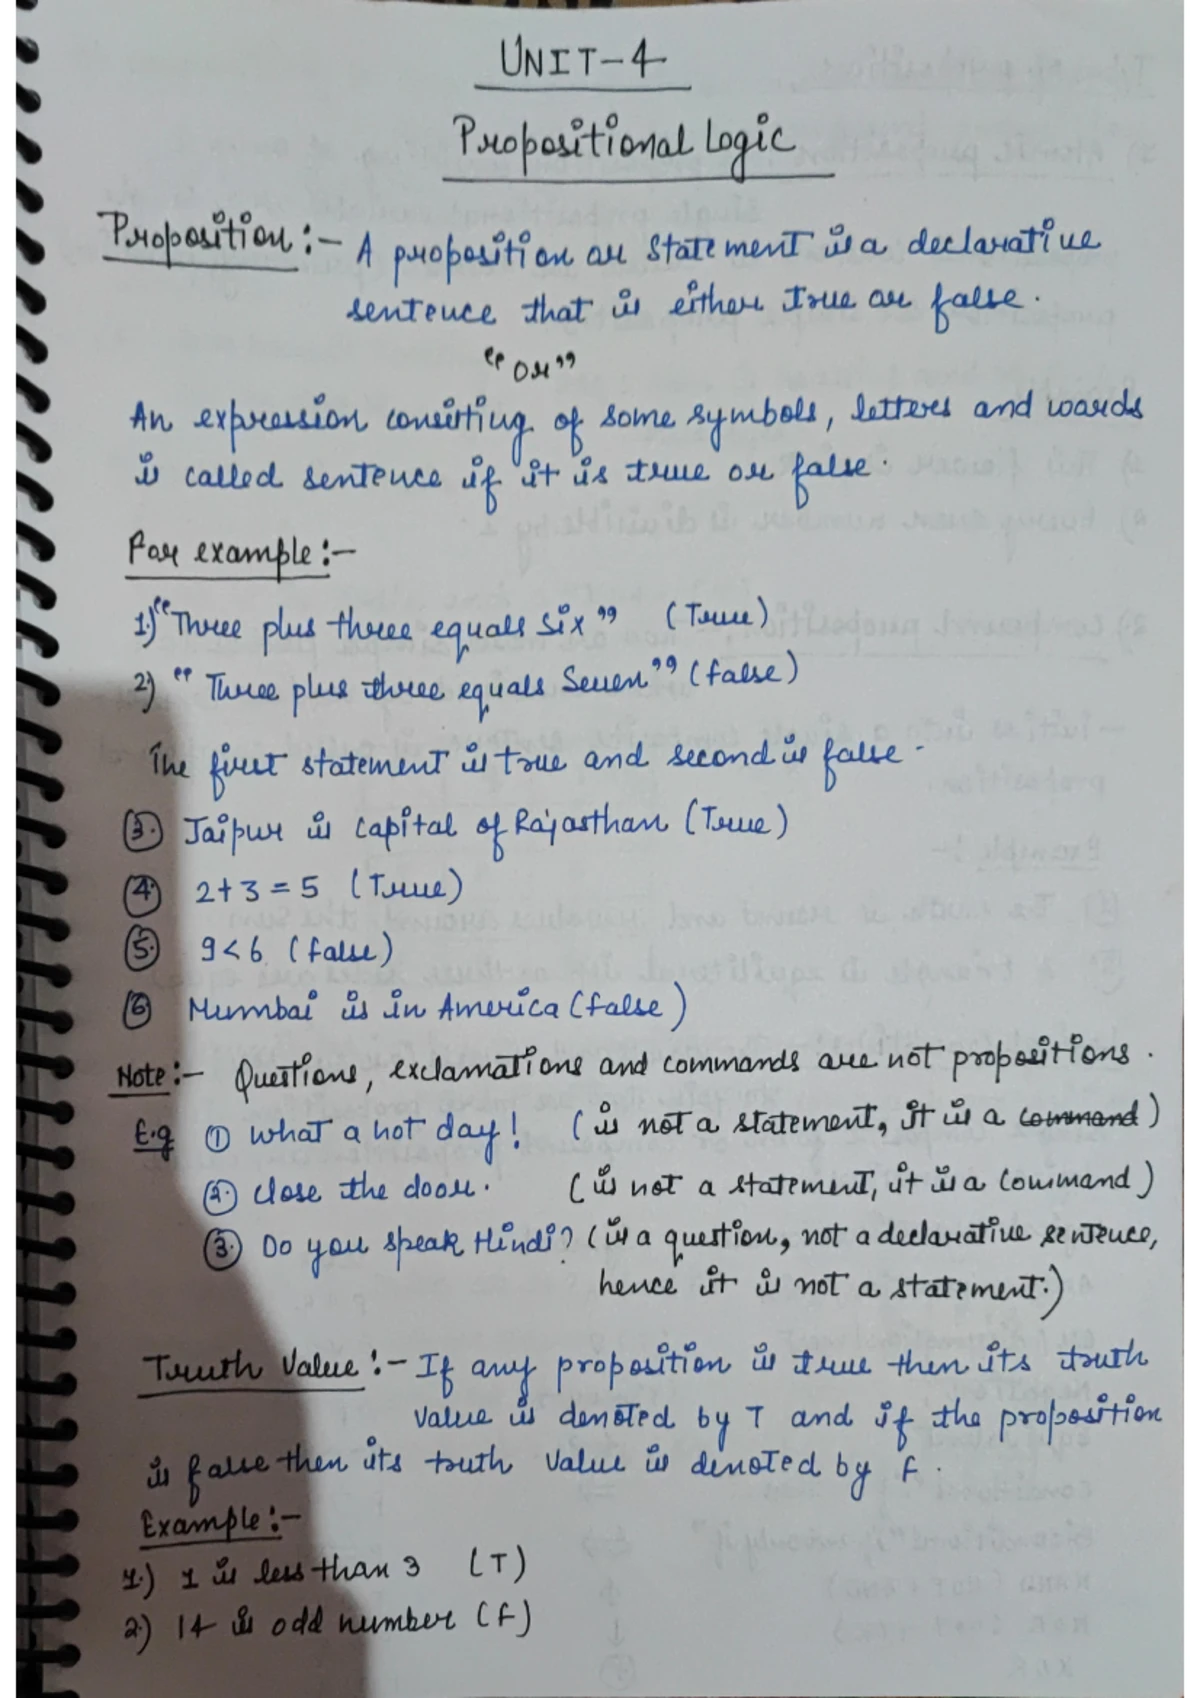 UNIT-4
Propositional Logic
Proposition:- A proposition or statement is a declarative
sentence that is either true or false.
"or"
An expression consisting of some symbols, letters and words
is called sentence if it is true or false.
For example:-
1.) "Three plus three equals six" (True)
2) "Three plus three equals Seven" (false)
The first statement is true and second is false.
3. Jaipur is capital of Rajasthan (True)
4. 2+3=5 (True)
5. 9<6 (false)
6 Mumbai is in America (false)
Note:- Questions, exclamations and commands are not propositions.
E.g 1 What a hot day! (is not a statement, it is a command)
2. Close the door. (is not a statement, it is a command)
3. Do you speak Hindi? (is a question, not a declarative sentence,
hence it is not a statement.)
Truth Value:- If any proposition is true then its truth
value is denoted by T and if the proposition
is false then its truth value is denoted by F.
Example:-
1.) 1 is less than 3 (T)
2) 14 is odd number (F)